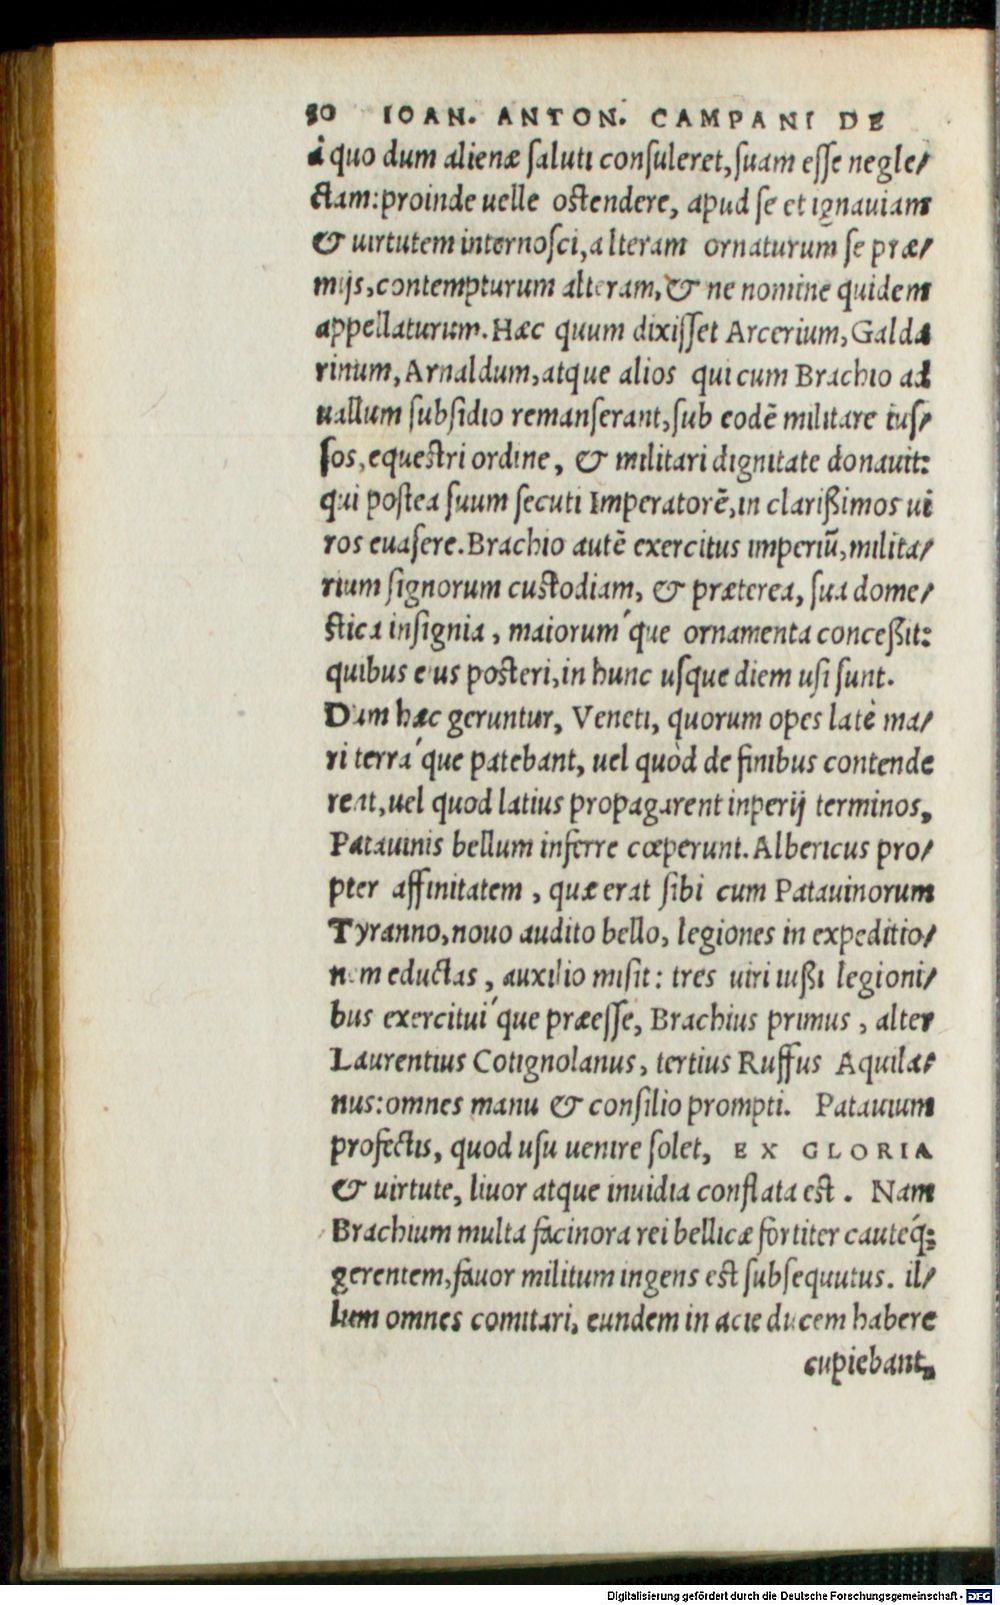 80 IOAN. ANTON. CAMPANI DE
à quo dum alienæ saluti consuleret, suam esse negle/
ctam: proinde uelle ostendere, apud se et ignauiam
& uirtutem internosci, alteram ornaturum se præ/
mijs, contempturum alteram, & ne nomine quidem
appellaturum. Hæc quum dixisset Arcerium, Galda
rinum, Arnaldum, atque alios qui cum Brachio ad
uallum subsidio remanserant, sub eodē militare ius/
sos, equestri ordine, & militari dignitate donauit:
qui postea suum secuti Imperatorē, in clarißimos ui
ros euasere. Brachio autē exercitus imperiū, milita/
rium signorum custodiam, & præterea, sua dome/
stica insignia, maiorum´que ornamenta conceßit:
quibus eius posteri, in hunc usque diem usi sunt.
Dum hæc geruntur, Veneti, quorum opes latè ma/
ri terra´que patebant, uel quòd de finibus contende
rent, uel quod latius propagarent inperij terminos,
Patauinis bellum inferre cœperunt. Albericus pro/
pter affinitatem, quæ erat sibi cum Patauinorum
Tyranno, nouo audito bello, legiones in expeditio/
nem eductas, auxilio misit: tres uiri iußi legioni/
bus exercitui´que præesse, Brachius primus, alter
Laurentius Cotignolanus, tertius Ruffus Aquila/
nus: omnes manu & consilio prompti. Patauium
profectis, quod usu uenire solet, EX GLORIA
& uirtute, liuor atque inuidia conflata est. Nam
Brachium multa facinora rei bellicæ fortiter cauteq́;
gerentem, fauor militum ingens est subsequutus. il/
lum omnes comitari, eundem in acie ducem habere
cupiebant,
Digitalisierung gefördert durch die Deutsche Forschungsgemeinschaft - DFG